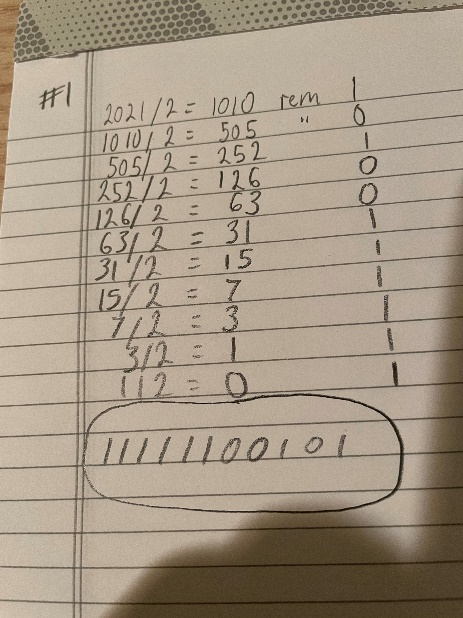 #1
2021/2 = 1010 rem 1
1010/2 = 505 " 0
505/2 = 252 1
252/2 = 126 0
126/2 = 63 0
63/2 = 31 1
31/2 = 15 1
15/2 = 7 1
7/2 = 3 1
3/2 = 1 1
1/2 = 0 1
11111100101